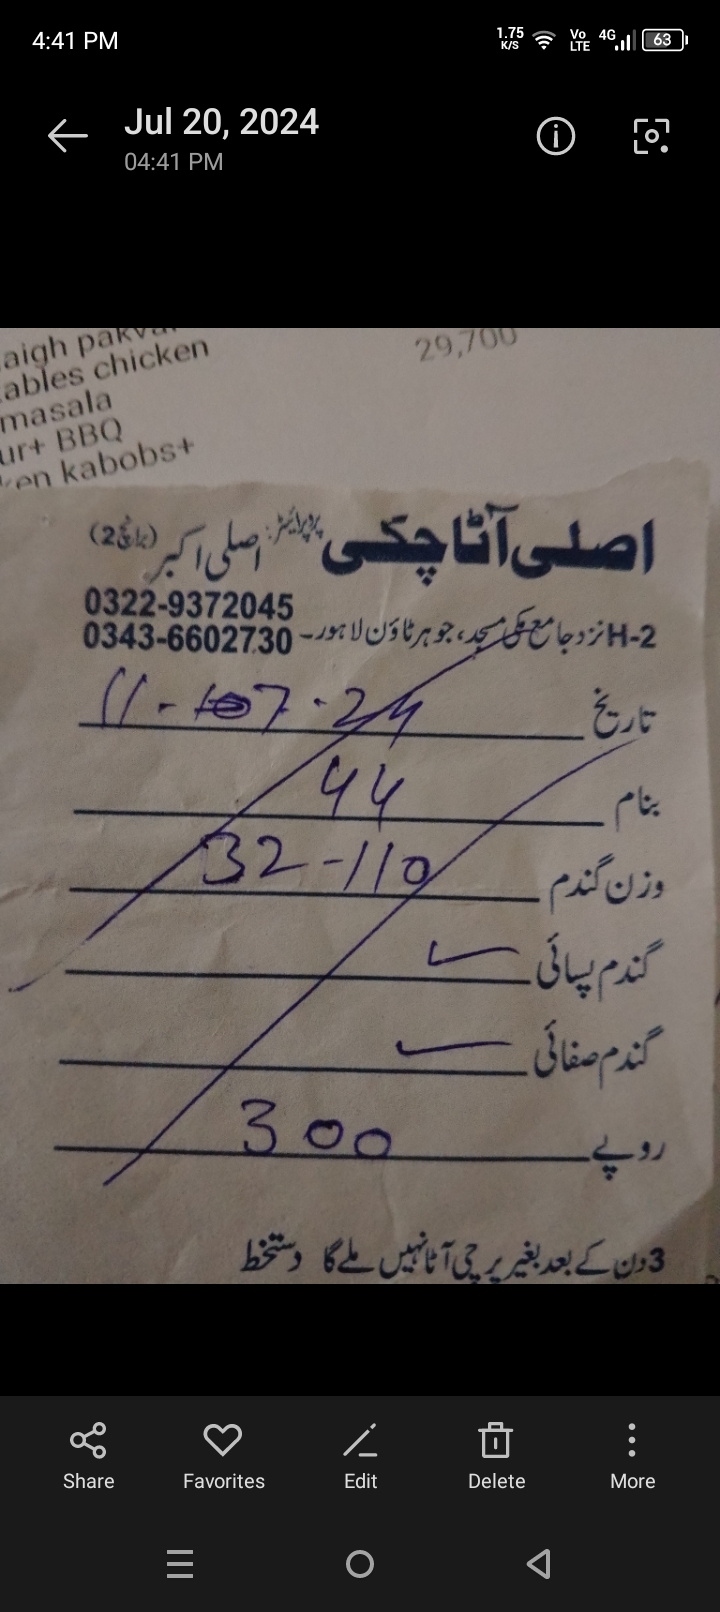 4:41 PM
1.75 K/S
Vo LTE
4G
63
Jul 20, 2024
04:41 PM
aigh
ables chicken
29,700
masala
ur+ BBQ
ken kabobs+
اصلی آٹا چکی پروپرائیٹر: اصلی اکبر (برانچ 2)
0322-9372045
H-2 نزد جامع مکی مسجد، جوہر ٹاؤن لاہور۔ 0343-6602730
تاریخ 11-07-24
بنام 44
وزن گندم 32-110
گندم پسائی ✓
گندم صفائی ✓
روپے 300
3 دن کے بعد بغیر پرچی آٹا نہیں ملے گا دستخط
Share
Favorites
Edit
Delete
More